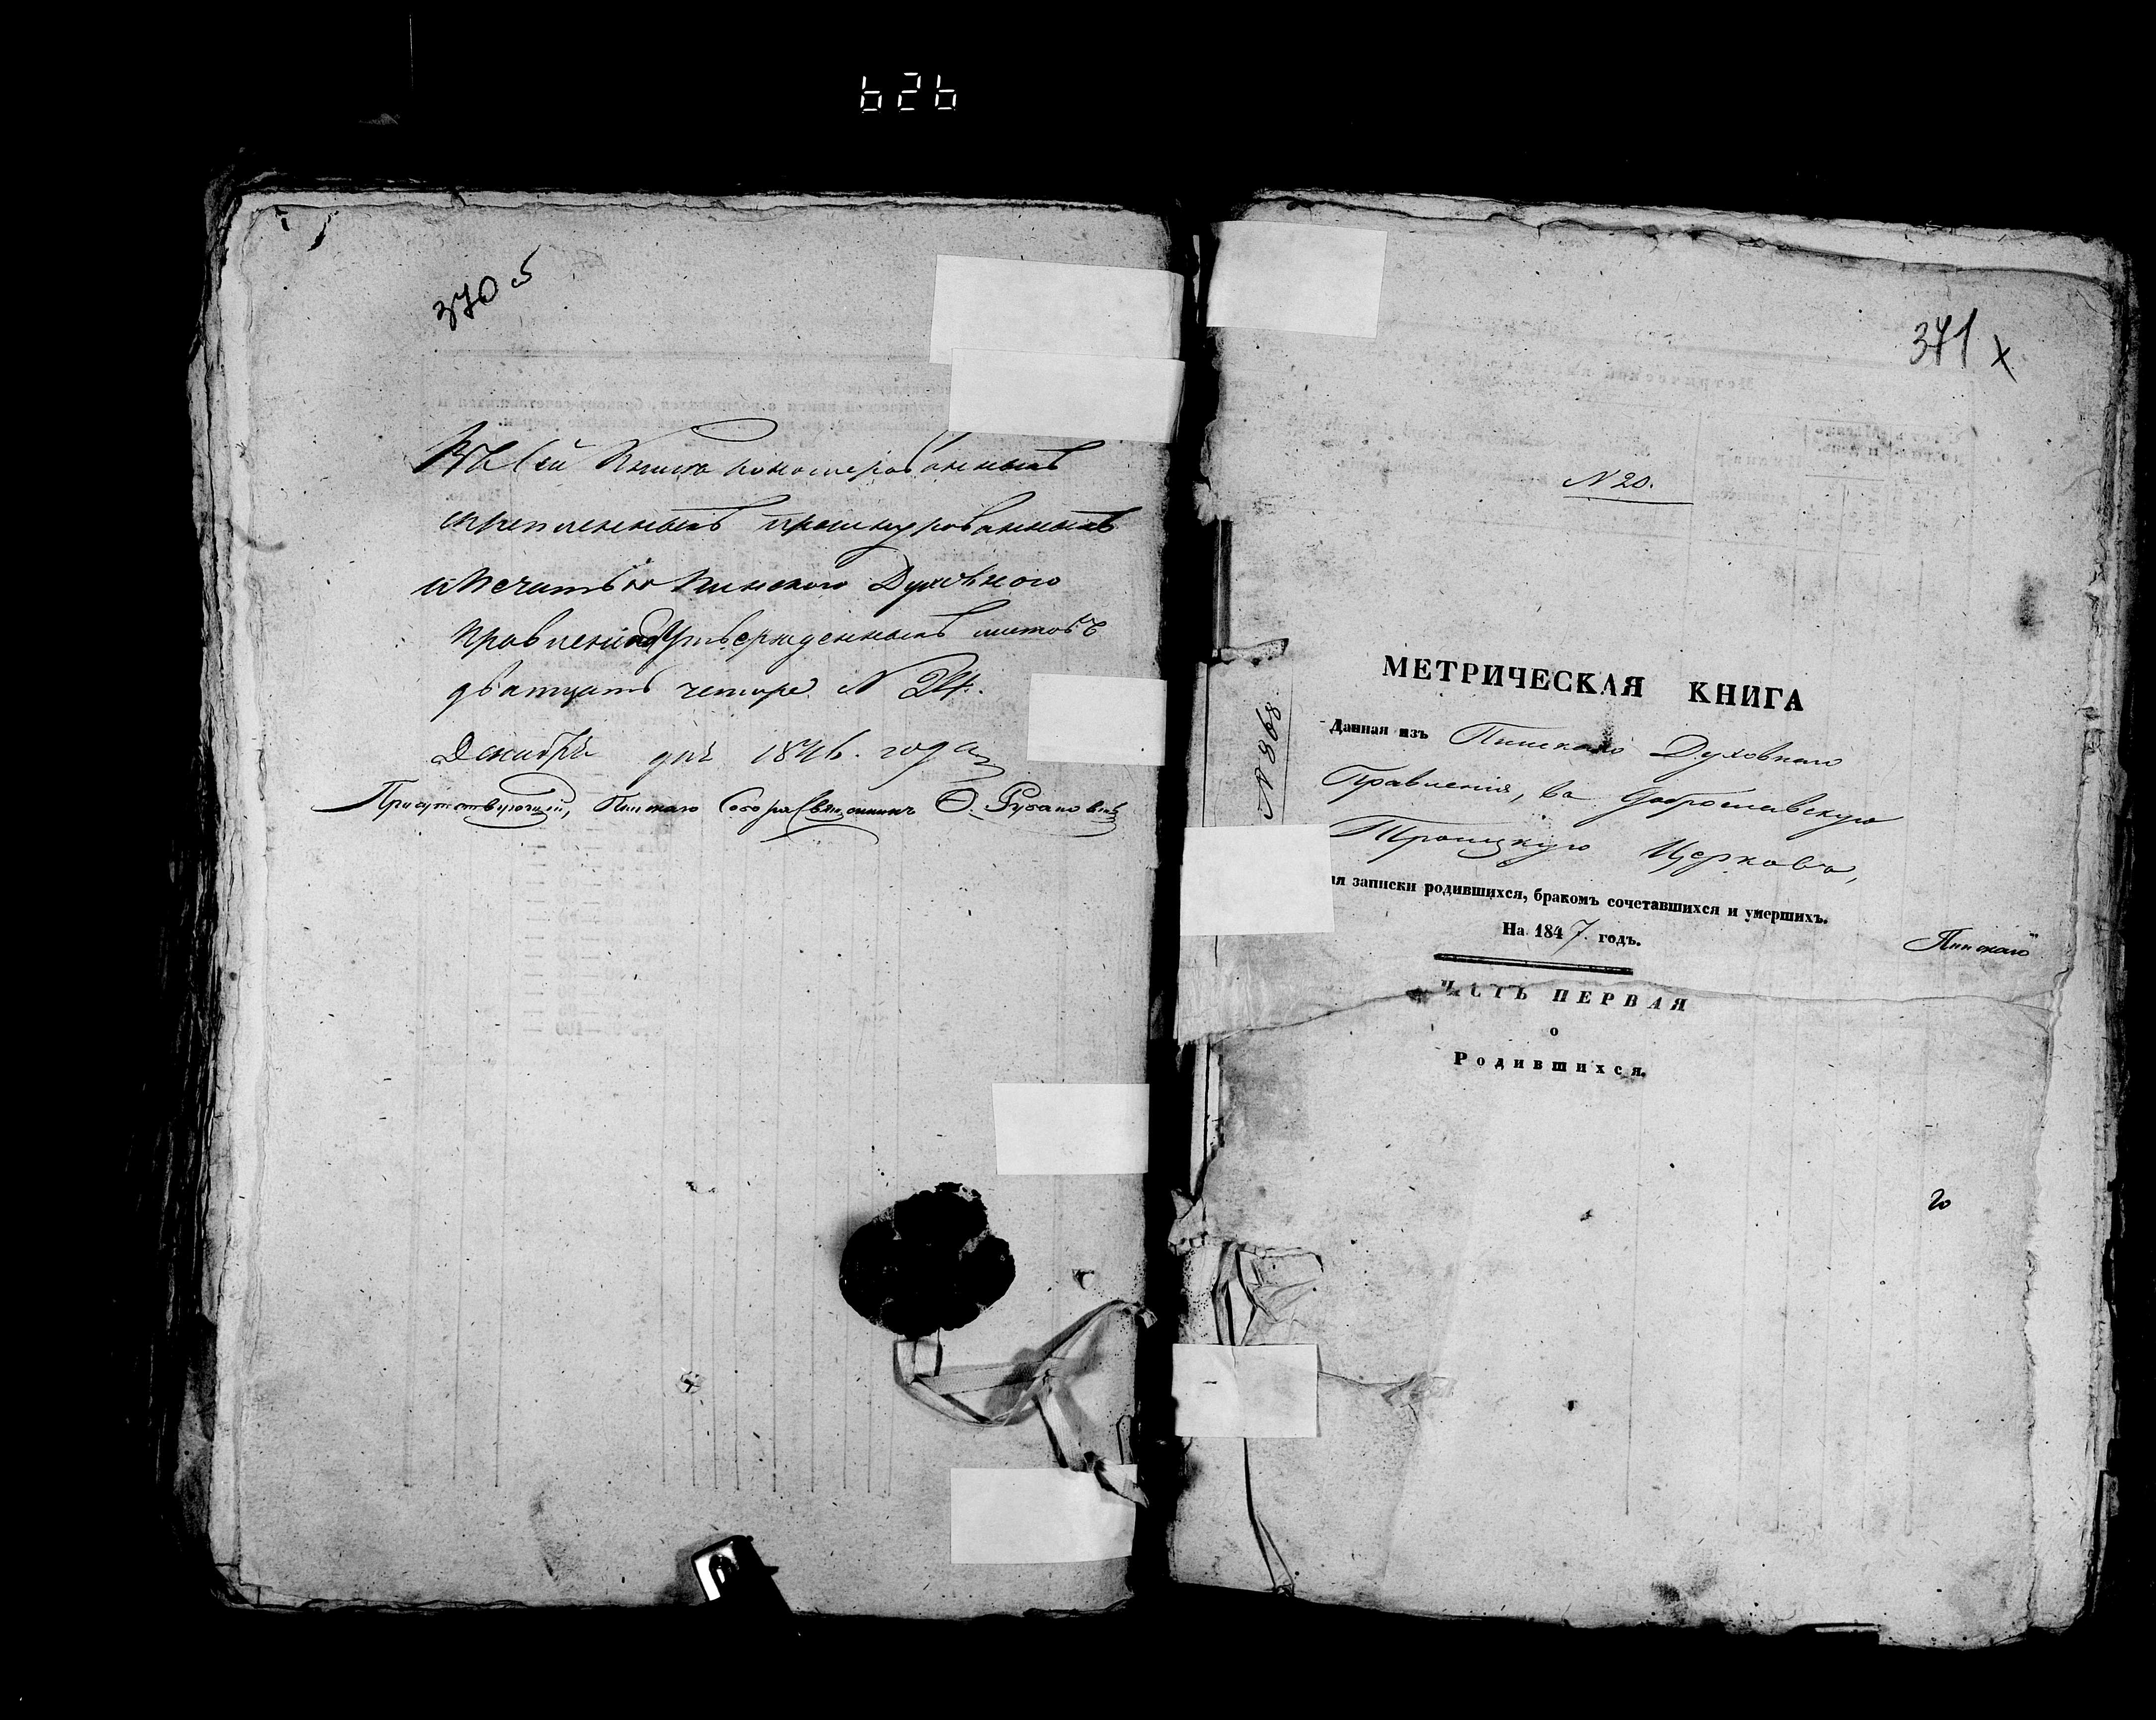 626
370 б
Въ сей Книга пономерованныхъ
скрепленныхъ прошнурованныхъ
и Печатью Пинского Духовного
Правленія Утвержденныхъ листовъ
дватцать четыре N 24.
Декабря дня 1846. года
Присутствующій, Пинскаго Собора Священникъ Ѳ.
371 х
N 20.
N 868
МЕТРИЧЕСКАЯ КНИГА
Данная изъ Пинскаго Духовнаго
Правленія, въ Доброславскую
Троицкую Церковь,
записки родившихся, бракомъ сочетавшихся и умершихъ.
На 1847 годъ.
Пинскаго
ЧАСТЬ ПЕРВАЯ
о
Родившихся.